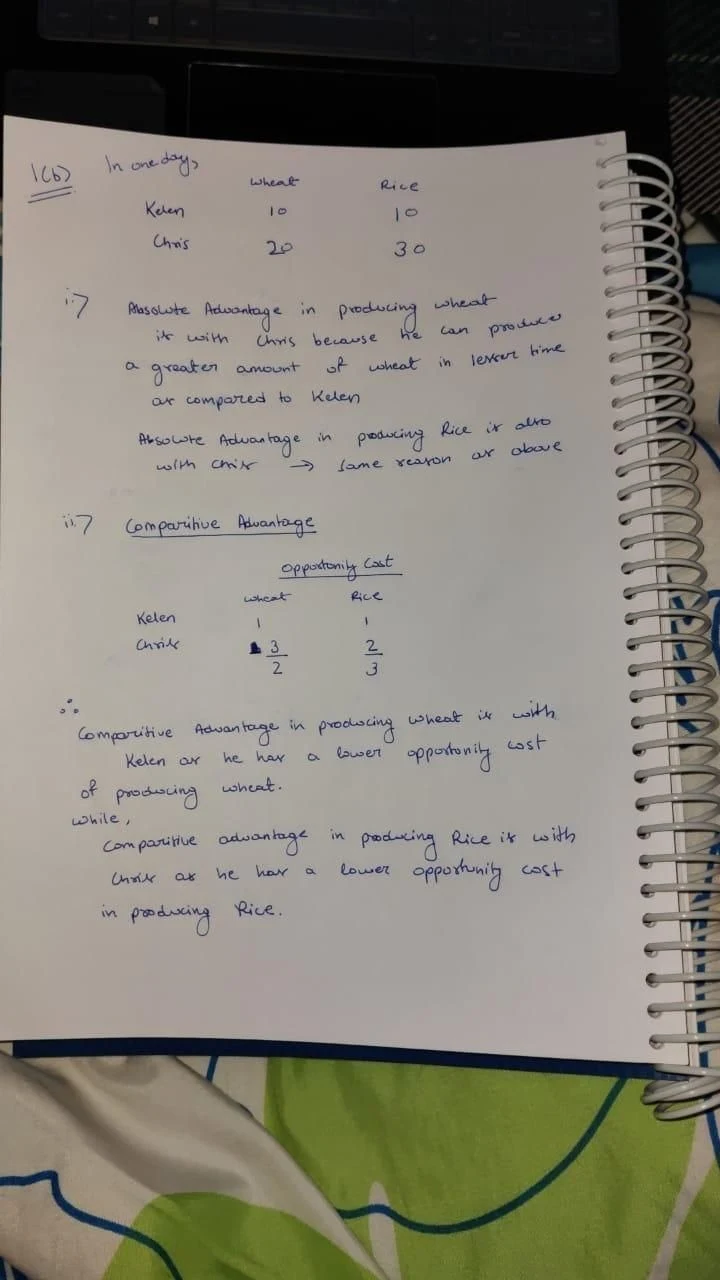 1(b) In one day,
Wheat Rice
Kelen 10 10
Chris 20 30
i.7 Absolute Advantage in producing wheat
is with Chris because he can produce
a greater amount of wheat in lesser time
as compared to Kelen
Absolute Advantage in producing Rice is also
with Chris → Same reason as above
ii.7 Comparitive Advantage
Opportonity Cost
Wheat Rice
Kelen 1 1
Chris 3/2 2/3
∴
Comparitive Advantage in producing wheat is with
Kelen as he has a lower opportonity cost
of producing wheat.
while,
Comparitive advantage in producing Rice is with
Chris as he has a lower opportunity cost
in producing Rice.